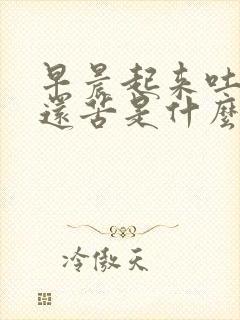 早晨起来吐
還苦是什麼
冷傲天